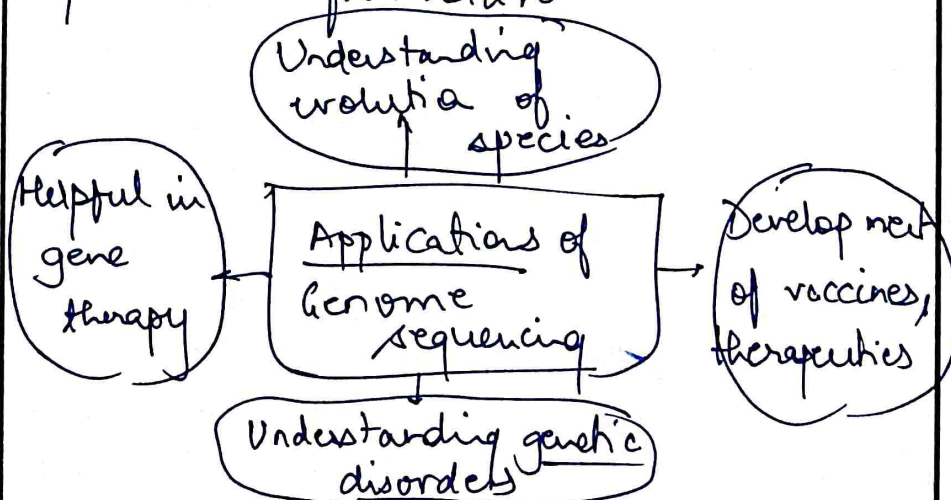 Understanding
evolutia of
species
Helpful in
gene
therapy
Applications of
Genome
sequencing
Development
of vaccines,
therapeuties
Understanding genetic
disorders